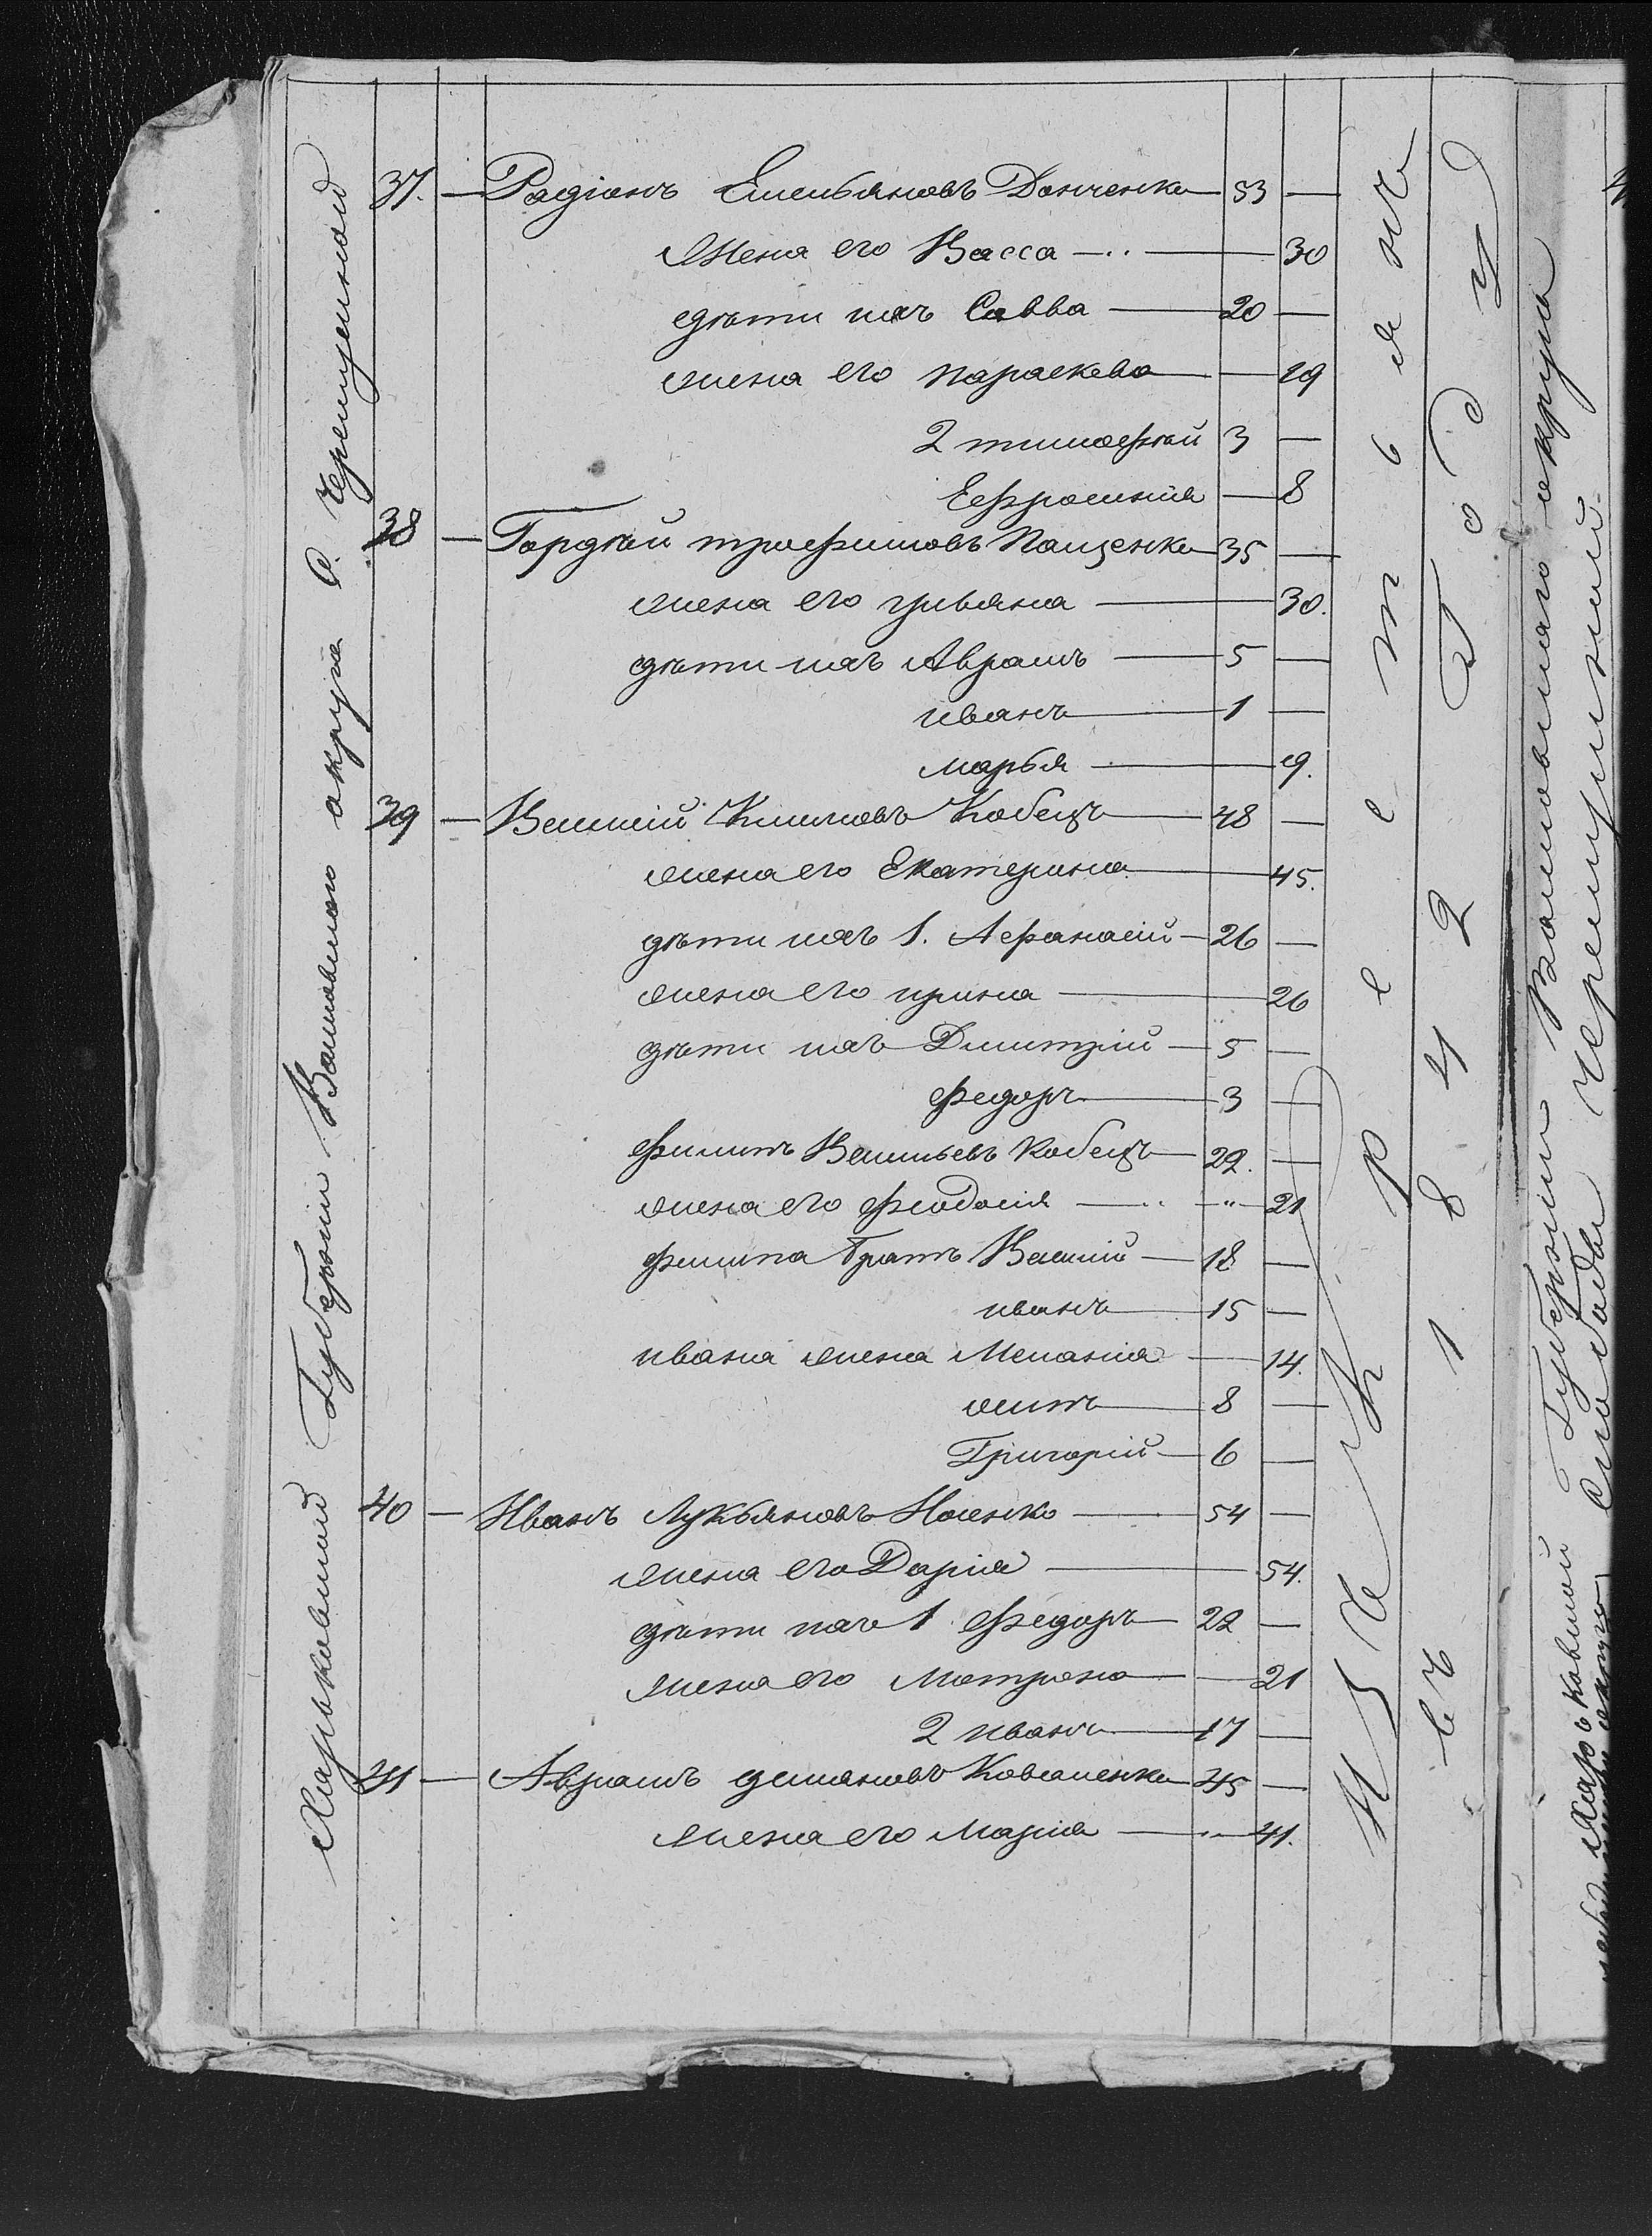 Харьковской Губерніи Валковского округа С. Черемушной
37. — Радіонъ Емельяновъ Донченко — 53 —
Жена его Васса — 30
дѣти ихъ Савва — 20 —
жена его параскева — 19
2 тимофѣй 3 —
Ефросинія — 8
38 — Гордѣй трофимовъ Пащенко — 35 —
жена его ульяна — 30.
дѣти ихъ Аврамъ — 5 —
иванъ — 1 —
марья — 9.
39 — Василій Климовъ Кобецъ — 48 —
жена его Екатерина — 45.
дѣти ихъ 1. Афанасій — 26 —
жена его ирина — 26
дѣти ихъ Дмитрій — 5 —
федоръ — 3 —
филипъ Васильевъ Кобецъ — 22. —
жена его феодосія — 21
филипа братъ Василій — 18 —
иванъ — 15 —
ивана жена Меланія — 14.
осипъ — 8 —
Григорій — 6 —
40 — Иванъ Лукьяновъ Носенко — 54 —
жена его Дарія — 54.
дѣти ихъ 1 федоръ — 22 —
жена его Матрона — 21
2 иванъ — 17 —
41 — Аврамъ демяновъ Коваленко — 45 —
жена его Марія — 41.
въ 1842 Году
Губерніи Валковскаго округа
Слободы Черемушной
Харьковской